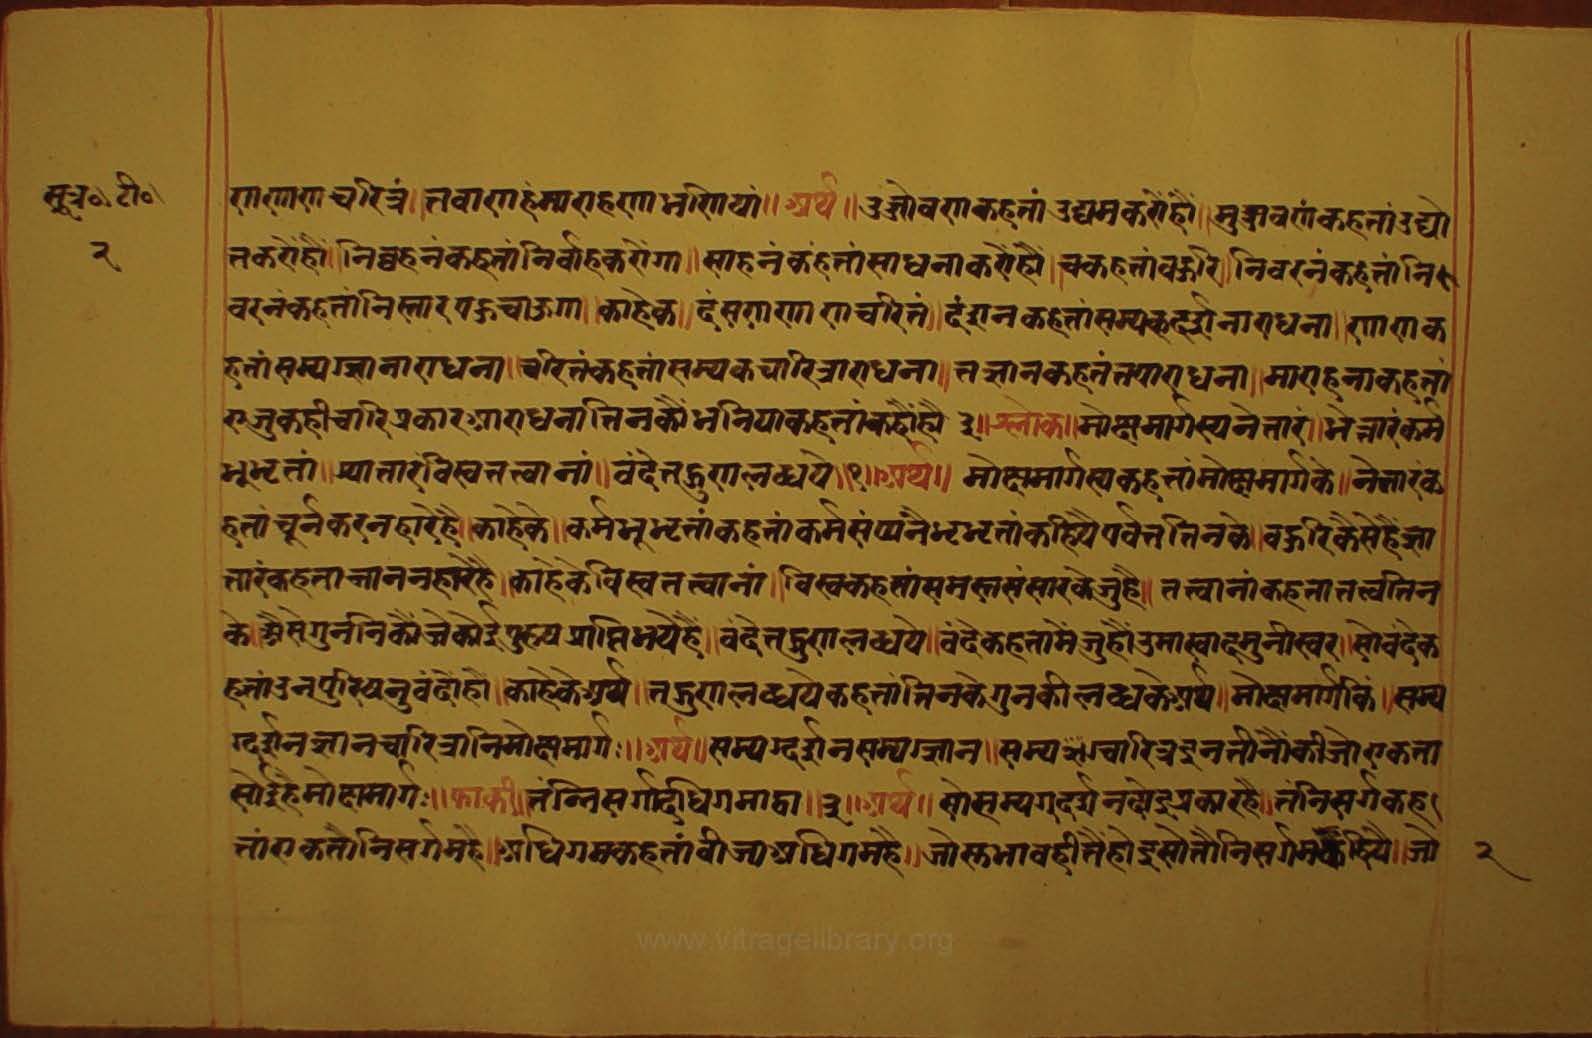 सूत्र॰ टी॰
२
णाणणा चरित्रं॥ तवाणाहंम्माराहणा भणियां॥ अर्थ॥ उज्जोवणाकहतां उद्यमकरौंहौं॥ मुज्जवणंकहतांउद्यो
तकरौंहौं॥ निव्वहनंकहतांनिर्वाहकरौंगा॥ साहनंकंहतांसाधनाकरौंहौं॥ चकहतांवङ्गरि॥ निवरनंकहतांनि
वरनंकहतांनिस्तारपङ्गचाऊगा॥ काहेक॥ दंसणणाणचरितं॥ दंर्शनकहतांसम्यक्दर्शनाराधना॥ णाणक
हतांसम्यग्ज्ञानाराधना॥ चरितंकहतांसम्यकचारित्राराधना॥ तज्ञानकहतंतपाराधना॥ माराहनाकहतां
एजुकहीचारिप्रकारआराधनातिनकौंभनियाकहतांकहौंहौं ३॥ श्लोक॥ मोक्षमार्गस्यनेतारं॥ भेत्तारंकर्म
भूभृतां॥ ग्यातारंविस्वतत्त्वानां॥ वंदेतद्गुणलब्धये॥१॥ अर्थ॥ मोक्षमार्गस्यकहतांमोक्षमार्गके॥ नेतारंक
हतांचूर्नकरनहारेहै॥ काहेके॥ कर्मभूभृतांकहतांकर्मसंप्यंनैभृभृतांकहियैपर्वततिनके॥ वङ्गरिकैसेहैंज्ञा
तारंकहताजाननहारेहै॥ काहेकेविस्वतत्त्वानां॥ विस्वकहतांसमस्तसंसारकेजुहै॥ तत्त्वानांकहतातत्त्वतिन
के॥ अैसेगुननिकौंजेकोईपुरुषप्राप्तिभयेहैं॥ वंदेतद्गुणलब्धये॥ वंदेकहतामेंजुहौंउमास्वादमुनीस्वर॥ सोवंदेक
हतांउनपुरिष्यनुवंदौहौं॥ काहेकेअर्थ॥ तद्गुणलब्धयेकहतांतिनकेगुनकीलब्धकेअर्थ॥ मोक्षमार्गकिं॥ सम्य
ग्दर्शनज्ञानचारित्रानिमोक्षमार्गः॥ अर्थ॥ सम्यग्दर्शनसम्यग्ज्ञान॥ सम्यग्चारित्रइनतीनौंकीजोएकता
सोईहैमोक्षमार्गः॥ फाकी॥ तंन्निसर्गादधिगमाद्वा॥३॥ अर्थ॥ सोसम्यगदर्शनदोइप्रकारहै॥ तंनिसर्गकह
तांएकतौनिसर्गमहै॥ अधिगमकहतांबीज्यअधिगमहै॥ जोस्वभावहीतैंहोइसोतौनिसर्गमकहियै॥ जो
२
www.vitragelibrary.org